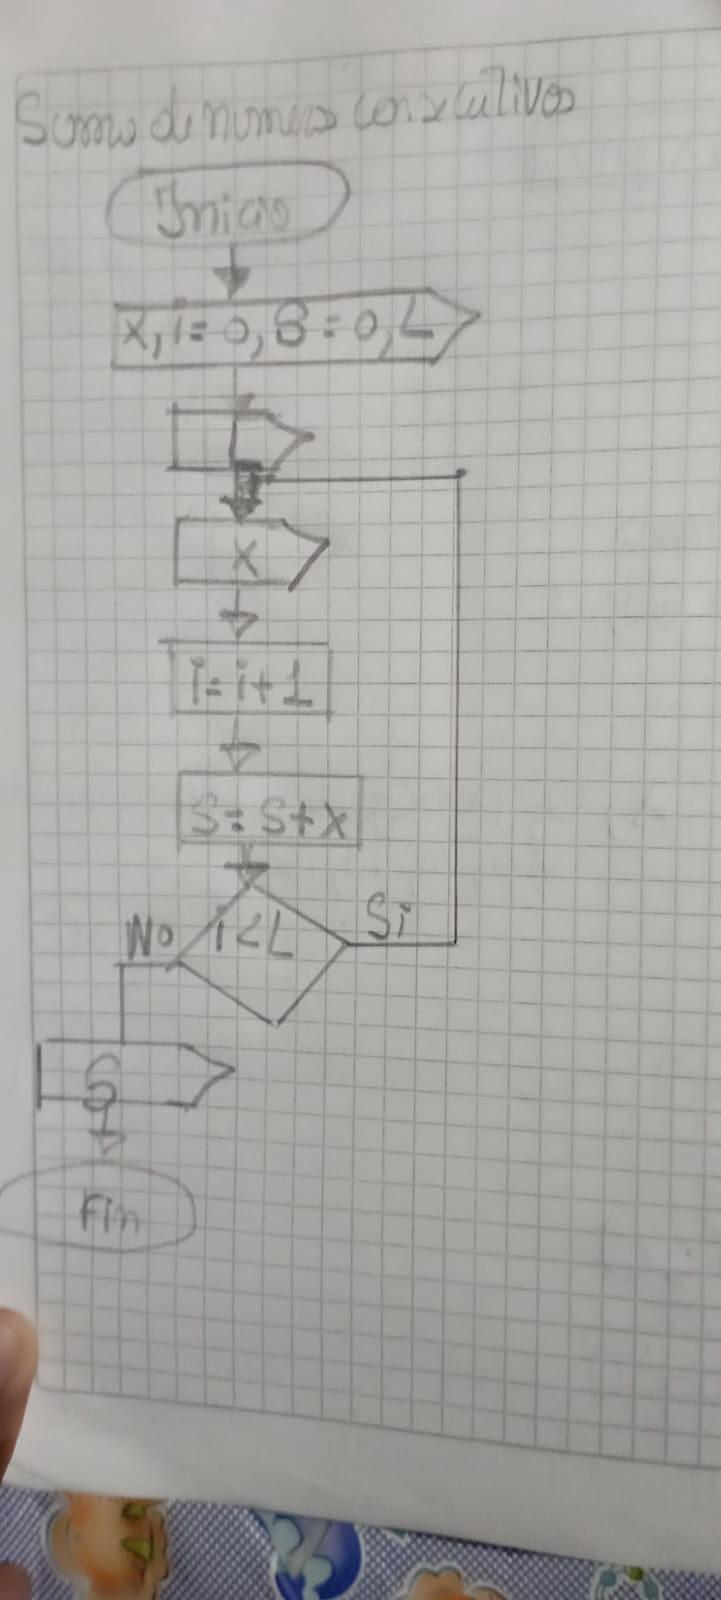 Suma de numeros consecutivos
Inicio
X, i = 0, S = 0, L
L
X
i = i + 1
S = S + X
i < L
Si
No
S
Fin